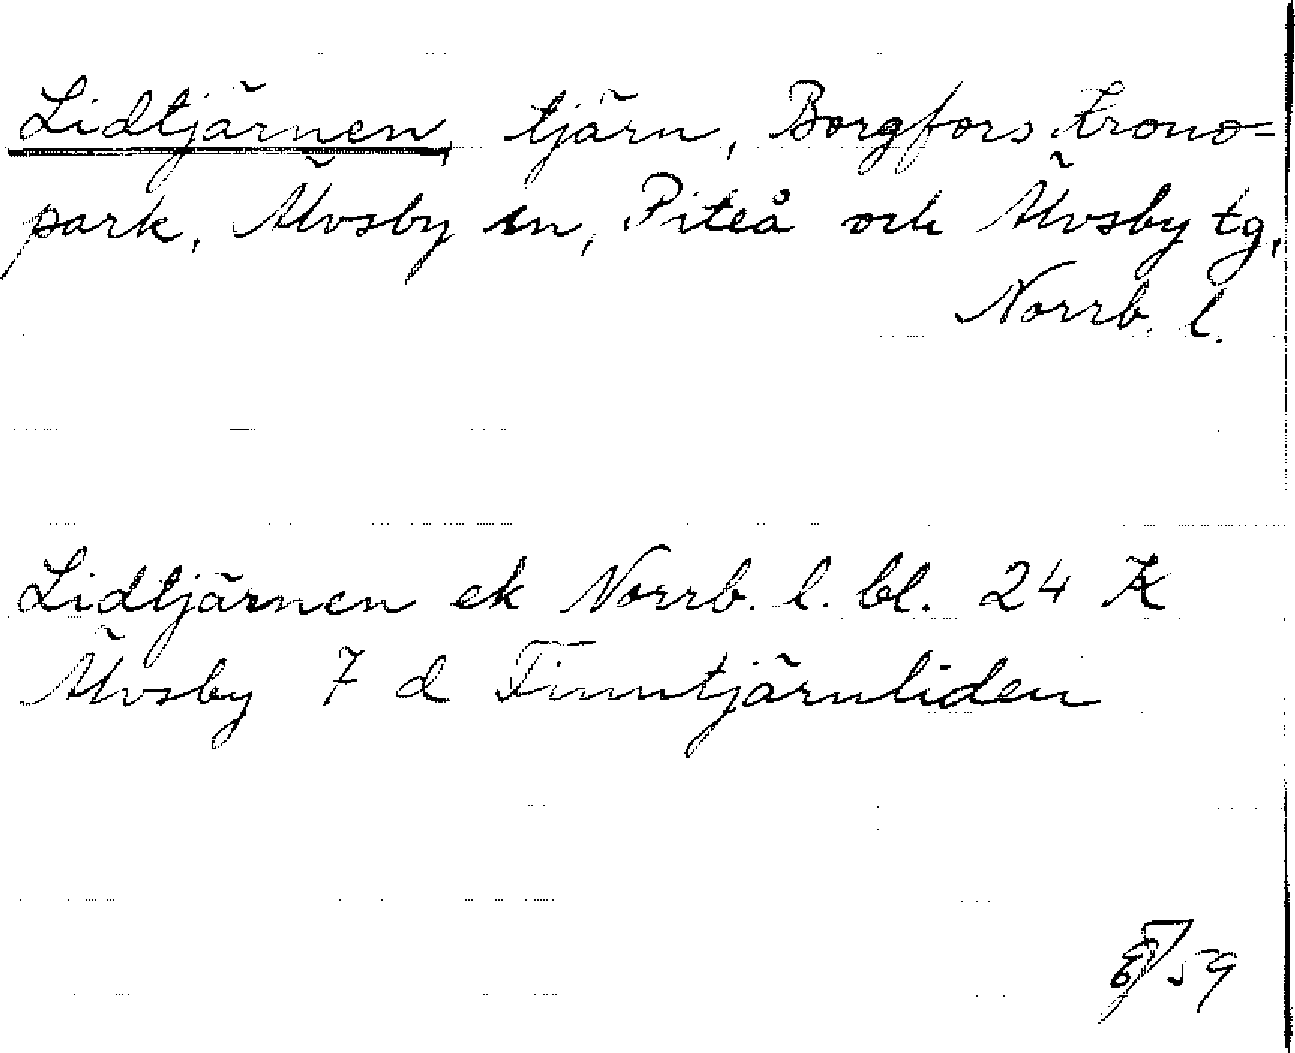 Lidtjärnen, tjärn, Borgfors Krono=
park, Älvsby sn, Piteå och Älvsby tg,
Norrb. l.
Lidtjärnen ek Norrb. l. bl. 24 K
Älvsby 7 d Finntjärnliden
59